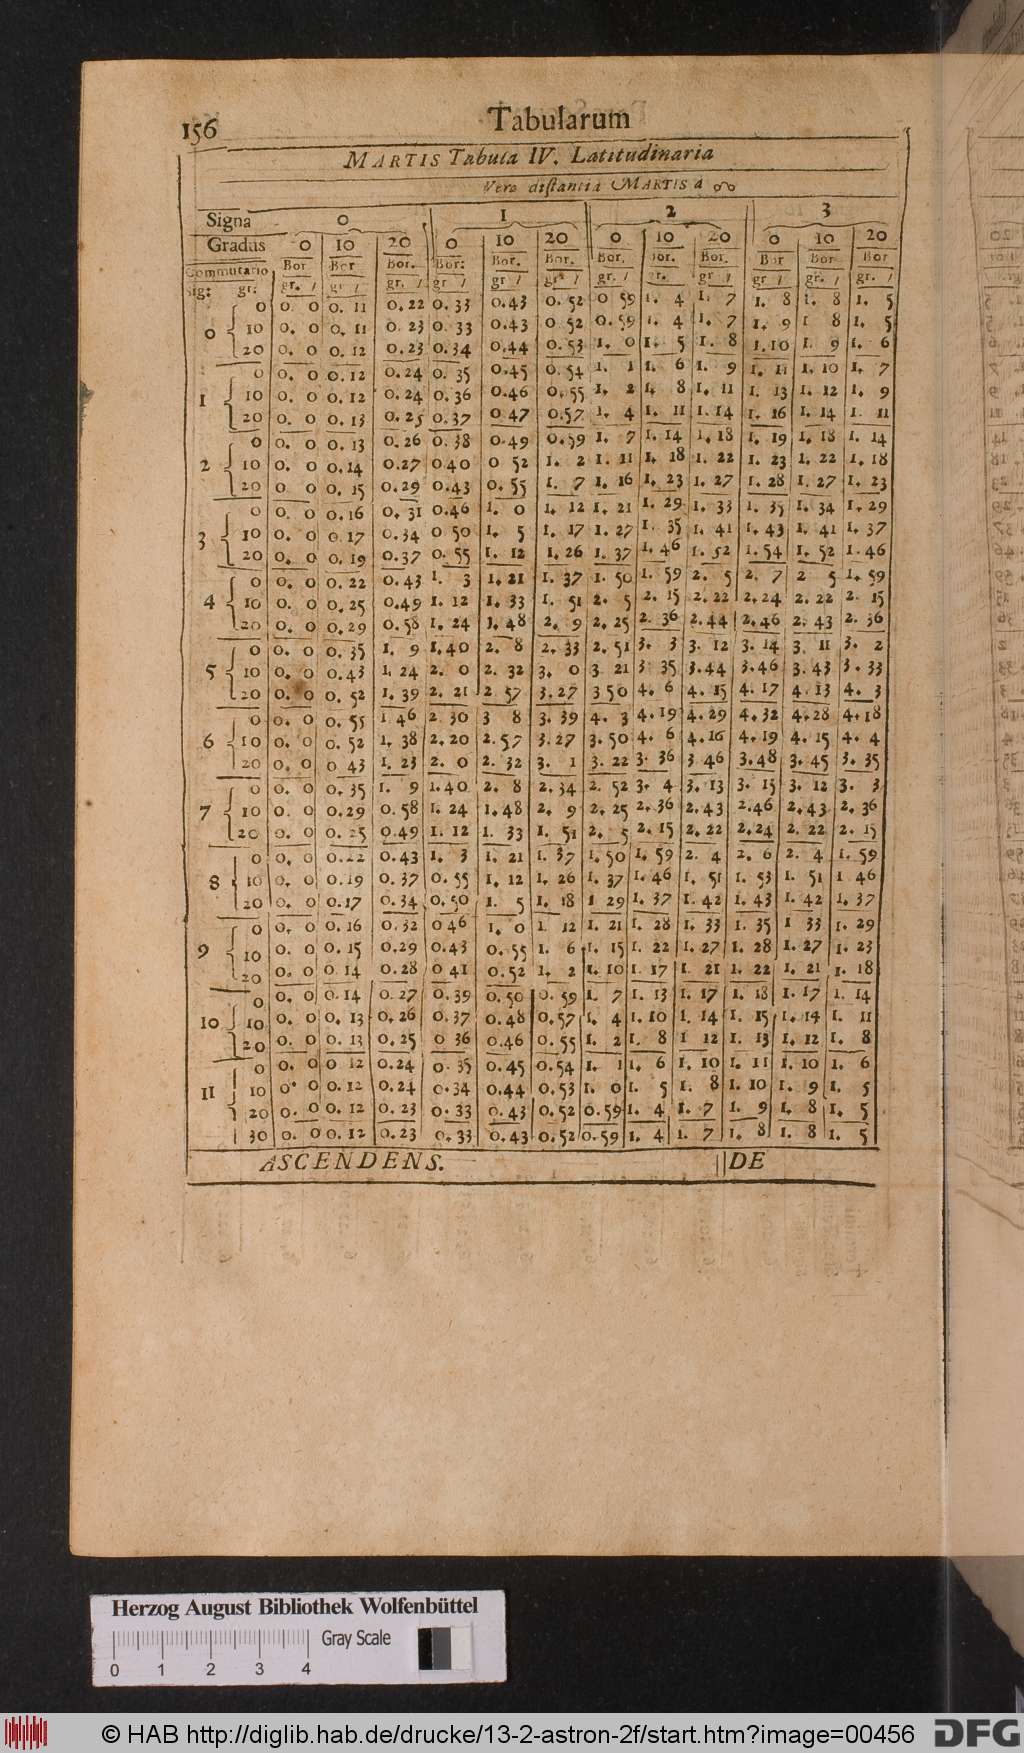 156 Tabularum
MARTIS Tabula IV. Latitudinaria
Vera distantia MARTIS à ☊
Signa 0 1 2 3
Gradus 0 10 20 0 10 20 0 10 20 0 10 20
Commutatio Bor. Bor Bor. Bor: Bor. Bor. Bor. Bor. Bor. Bor Bor Bor
sig: gr: gr. / gr / gr. / gr / gr / gr / gr. / gr. gr / gr / gr. / gr. /
0 0. 0 0. 11 0.22 0. 33 0.43 0. 52 0 59 1. 4 1. 7 1. 8 1. 8 1. 5
0 10 0. 0 0. 11 0. 23 0. 33 0.43 0 52 0.59 1. 4 1. 7 1. 9 1 8 1. 5
20 0. 0 0. 12 0.23 0.34 0.44 0.53 1. 0 1. 5 1. 8 1.10 1. 9 1. 6
0 0. 0 0.12 0.24 0. 35 0.45 0. 54 1. 1 1. 6 1. 9 1. 11 1. 10 1. 7
1 10 0. 0 0.12 0.24 0.36 0.46 0.55 1. 2 1. 8 1. 11 1. 13 1. 12 1. 9
20 0. 0 0. 13 0.25 0.37 0 47 0.57 1. 4 1. 11 1.14 1. 16 1. 14 1. 11
0 0. 0 0. 13 0.26 0. 38 0.49 0.59 1. 7 1. 14 1.18 1. 19 1. 18 1. 14
2 10 0. 0 0.14 0.27 0.40 0 52 1. 2 1. 11 1. 18 1. 22 1. 23 1. 22 1. 18
20 0. 0 0. 15 0.29 0.43 0. 55 1. 7 1. 16 1. 23 1. 27 1. 28 1. 27 1. 23
0 0. 0 0.16 0. 31 0.46 1. 0 1. 12 1. 21 1. 29 1. 33 1. 35 1. 34 1. 29
3 10 0. 0 0.17 0.34 0 50 1. 5 1. 17 1. 27 1. 35 1. 41 1. 43 1. 41 1. 37
20 0. 0 0. 19 0.37 0. 55 1. 12 1. 26 1. 37 1. 46 1. 52 1. 54 1. 52 1. 46
0 0. 0 0. 22 0.43 1. 3 1. 21 1. 37 1. 50 1. 59 2. 5 2. 7 2 5 1. 59
4 10 0. 0 0. 25 0.49 1. 12 1. 33 1. 51 2. 5 2. 15 2. 22 2.24 2. 22 2. 15
20 0. 0 0. 29 0.58 1. 24 1. 48 2. 9 2. 25 2. 36 2.44 2.46 2. 43 2. 36
0 0. 0 0. 35 1. 9 1.40 2. 8 2. 33 2. 51 3. 3 3. 12 3. 14 3. 11 3. 2
5 10 0. 0 0.43 1. 24 2. 0 2. 32 3. 0 3. 21 3 35 3.44 3.46 3. 43 3. 33
20 0. 0 0. 52 1. 39 2. 21 2 57 3.27 3 50 4. 6 4. 15 4. 17 4. 13 4. 3
0 0. 0 0. 55 1 46 2 30 3 8 3. 39 4. 3 4.19 4. 29 4. 32 4. 28 4. 18
6 10 0. 0 0. 52 1. 38 2. 20 2. 57 3.27 3. 50 4. 6 4.16 4. 19 4. 15 4. 4
20 0. 0 0 43 1. 23 2. 0 2. 32 3. 1 3. 22 3. 36 3 46 3.48 3. 45 3. 35
0 0. 0 0. 35 1. 9 1.40 2. 8 2. 34 2. 52 3. 4 3. 13 3. 15 3. 12 3. 3
7 10 0. 0 0.29 0. 58 1. 24 1.48 2. 9 2. 25 2. 36 2. 43 2.46 2. 43 2. 36
20 0. 0 0. 25 0.49 1. 12 1. 33 1. 51 2. 5 2. 15 2. 22 2. 24 2. 22 2. 15
0 0. 0 0.22 0.43 1. 3 1. 21 1. 37 1. 50 1. 59 2. 4 2. 6 2. 4 1. 59
8 10 0. 0 0.19 0. 37 0. 55 1. 12 1. 26 1. 37 1. 46 1. 51 1. 53 1. 51 1 46
20 0. 0 0.17 0. 34 0. 50 1. 5 1. 18 1 29 1. 37 1. 42 1. 43 1. 42 1. 37
0 0. 0 0. 16 0. 32 0 46 1. 0 1 12 1. 21 1. 28 1. 33 1. 35 1 33 1. 29
9 10 0. 0 0. 15 0.29 0.43 0. 55 1. 6 1. 15 1. 22 1. 27 1. 28 1. 27 1. 23
20 0. 0 0. 14 0.28 0 41 0.52 1. 2 1. 10 1. 17 1. 21 1. 22 1. 21 1. 18
0 0. 0 0. 14 0. 27 0. 39 0. 50 0. 59 1. 7 1. 13 1. 17 1. 18 1. 17 1. 14
10 10 0. 0 0. 13 0. 26 0. 37 0.48 0.57 1. 4 1. 10 1. 14 1. 15 1. 14 1. 11
20 0. 0 0. 13 0. 25 0 36 0.46 0. 55 1. 2 1. 8 1 12 1. 13 1. 12 1. 8
0 0. 0 0 12 0.24 0. 35 0.45 0.54 1. 1 1. 6 1. 10 1. 11 1. 10 1. 6
11 10 0. 0 0.12 0.24 0.34 0.44 0.53 1. 0 1. 5 1. 8 1. 10 1. 9 1. 5
20 0. 0 0. 12 0. 23 0. 33 0. 43 0.52 0.59 1. 4 1. 7 1. 9 1. 8 1. 5
30 0. 0 0. 12 0.23 0. 33 0.43 0.52 0.59 1. 4 1. 7 1. 8 1. 8 1. 5
ASCENDENS. DE
Herzog August Bibliothek Wolfenbüttel
Gray Scale
0 1 2 3 4
© HAB http://diglib.hab.de/drucke/13-2-astron-2f/start.htm?image=00456 DFG